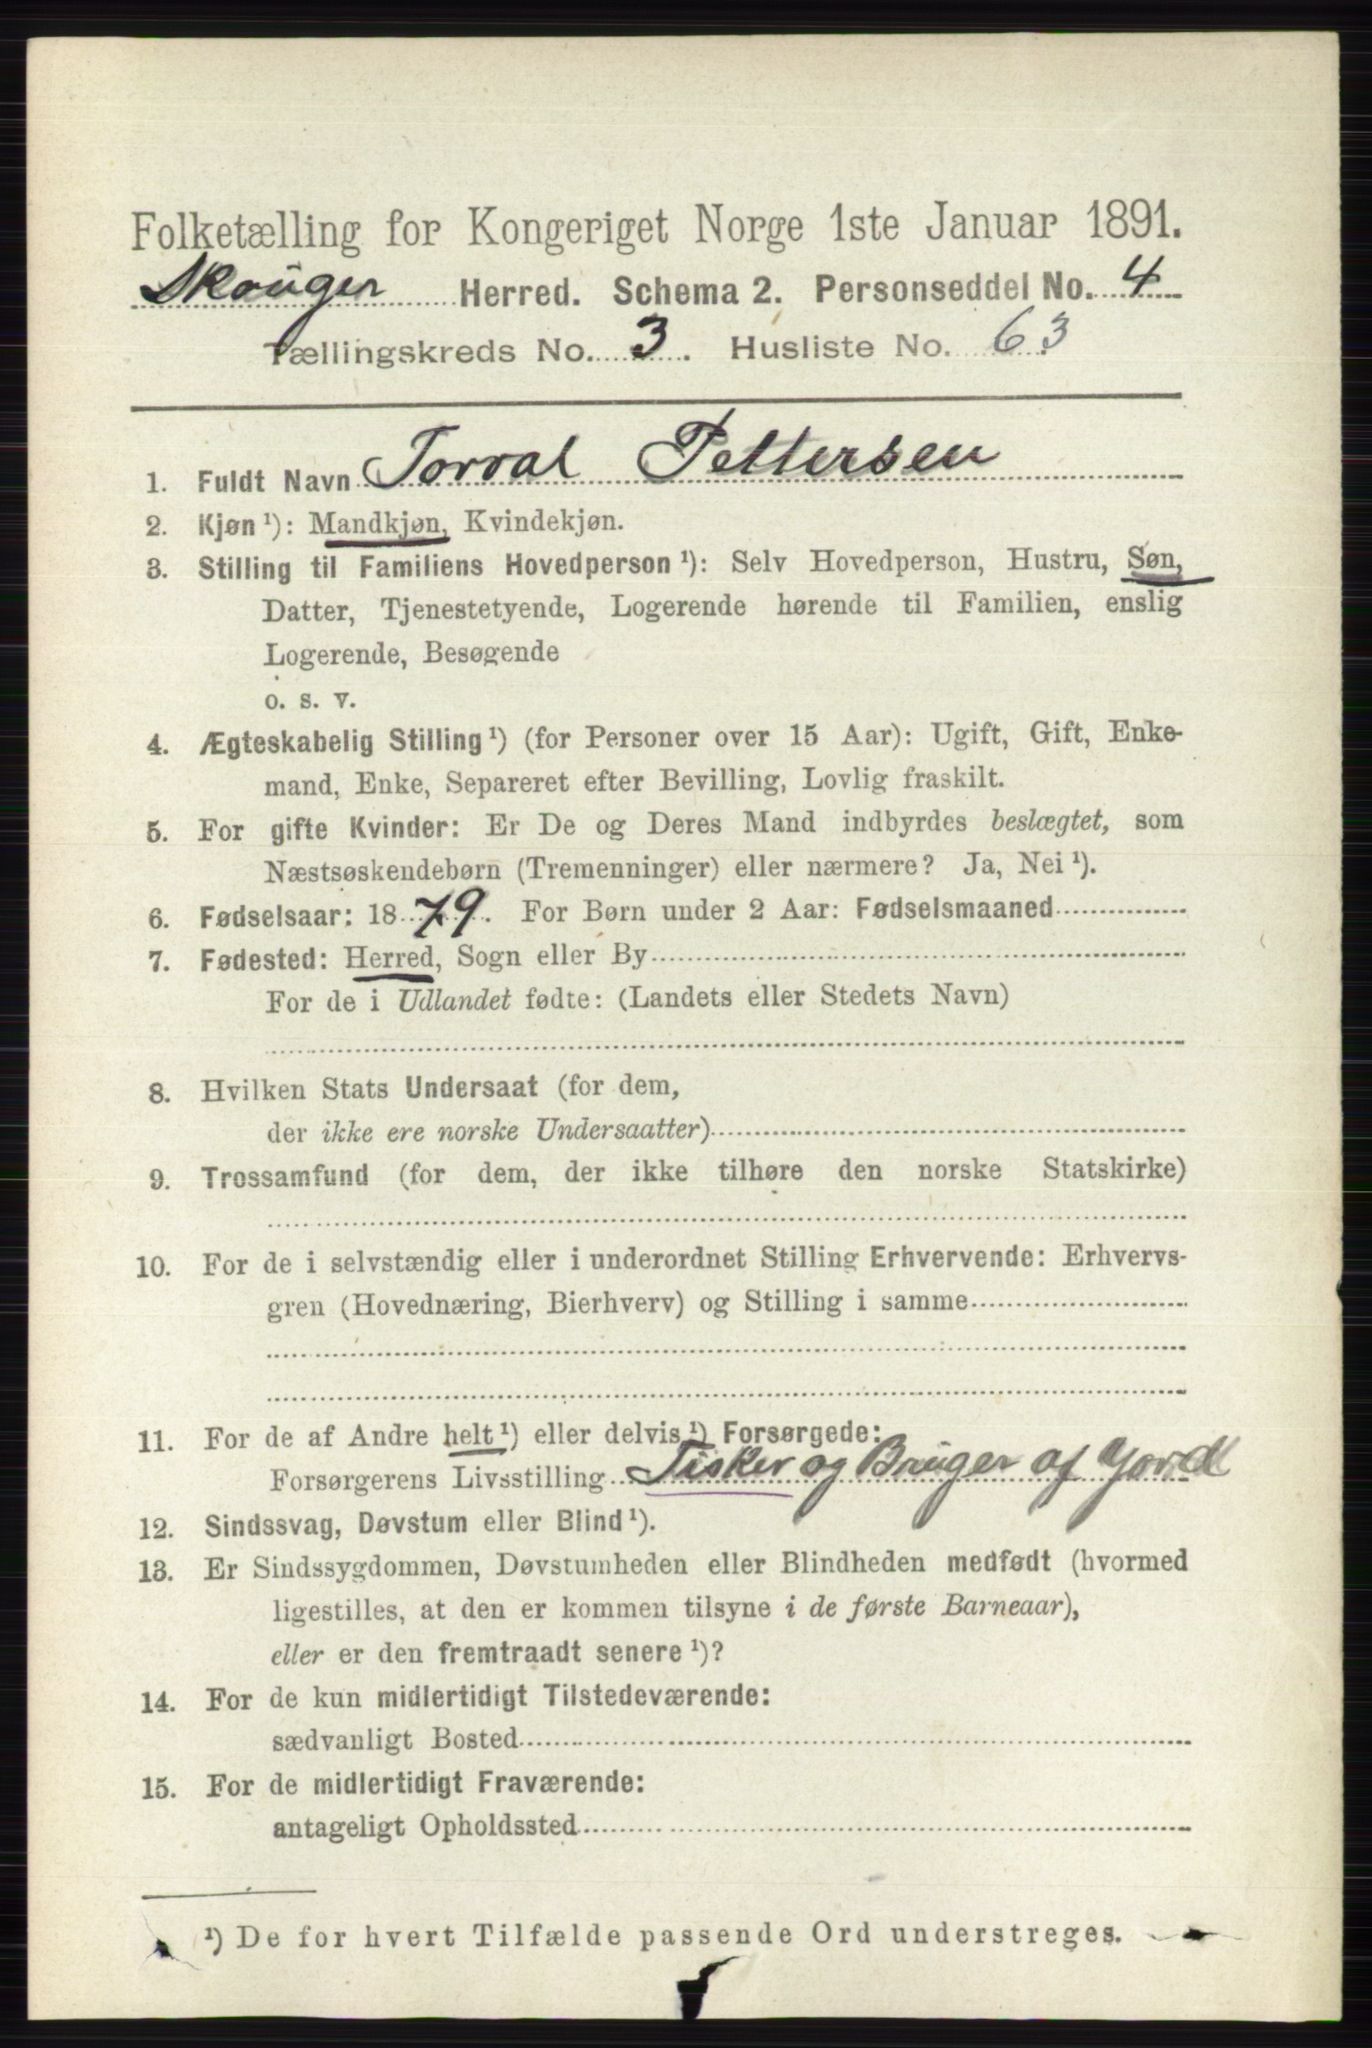 Folketælling for Kongeriget Norge 1ste Januar 1891.
Skouger Herred. Schema 2. Personseddel No. 4
Tællingskreds No. 3. Husliste No. 63
1. Fuldt Navn Torval Pettersen
2. Kjøn ¹): Mandkjøn, Kvindekjøn.
3. Stilling til Familiens Hovedperson ¹): Selv Hovedperson, Hustru, Søn,
Datter, Tjenestetyende, Logerende hørende til Familien, enslig
Logerende, Besøgende
o. s. v.
4. Ægteskabelig Stilling ¹) (for Personer over 15 Aar): Ugift, Gift, Enke-
mand, Enke, Separeret efter Bevilling, Lovlig fraskilt.
5. For gifte Kvinder: Er De og Deres Mand indbyrdes beslægtet, som
Næstsøskendebørn (Tremenninger) eller nærmere? Ja, Nei ¹).
6. Fødselsaar: 1879. For Børn under 2 Aar: Fødselsmaaned
7. Fødested: Herred, Sogn eller By
For de i Udlandet fødte: (Landets eller Stedets Navn)
8. Hvilken Stats Undersaat (for dem,
der ikke ere norske Undersaatter)
9. Trossamfund (for dem, der ikke tilhøre den norske Statskirke)
10. For de i selvstændig eller i underordnet Stilling Erhvervende: Erhvervs-
gren (Hovednæring, Bierhverv) og Stilling i samme
11. For de af Andre helt ¹) eller delvis ¹) Forsørgede:
Forsørgerens Livsstilling Fisker og Bruger af Jord
12. Sindssvag, Døvstum eller Blind ¹).
13. Er Sindssygdommen, Døvstumheden eller Blindheden medfødt (hvormed
ligestilles, at den er kommen tilsyne i de første Barneaar),
eller er den fremtraadt senere ¹)?
14. For de kun midlertidigt Tilstedeværende:
sædvanligt Bosted
15. For de midlertidigt Fraværende:
antageligt Opholdssted
¹) De for hvert Tilfælde passende Ord understreges.